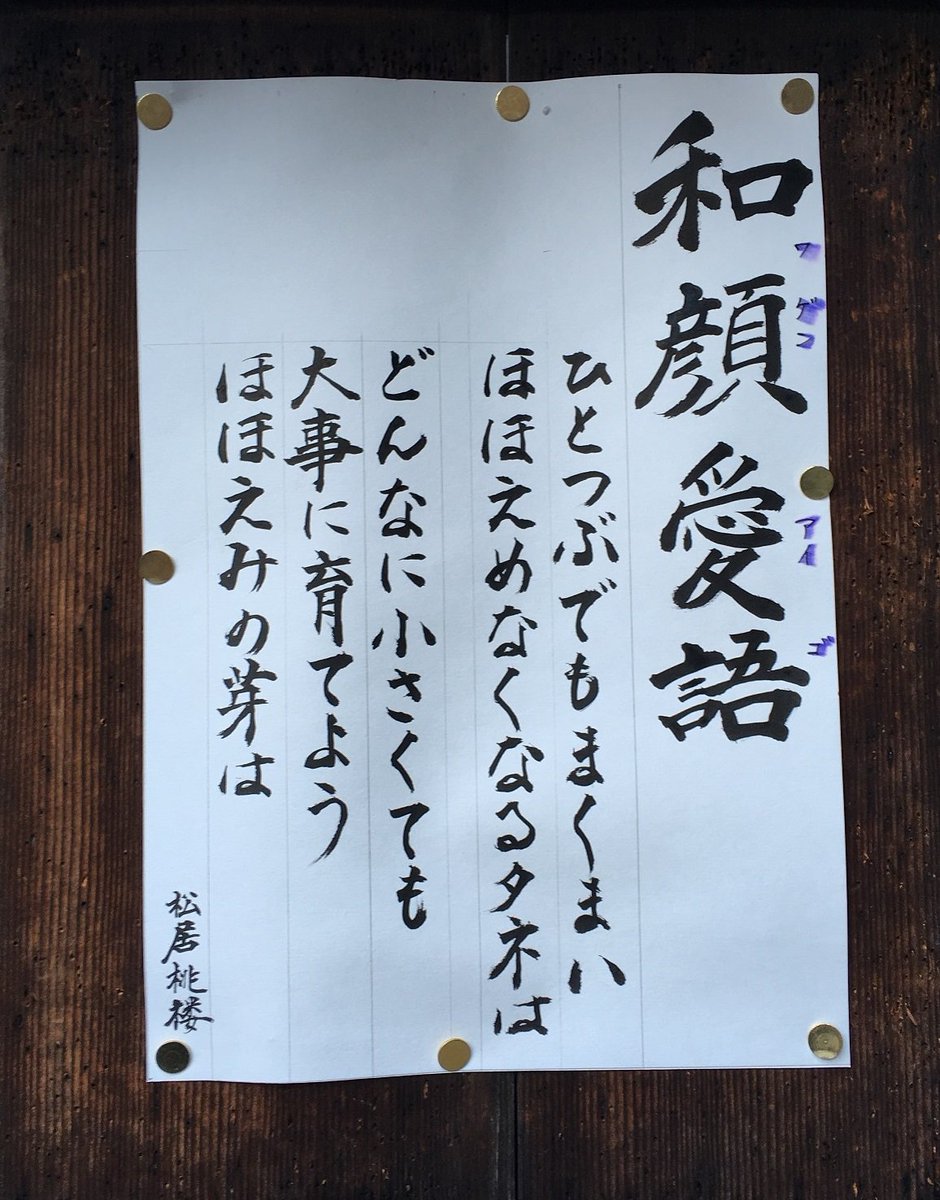 和顔愛語
ワ ゲン アイ ゴ
ひとつぶでもまくまい
ほほえめなくなるタネは
どんなに小さくても
大事に育てよう
ほほえみの芽は
松居桃楼